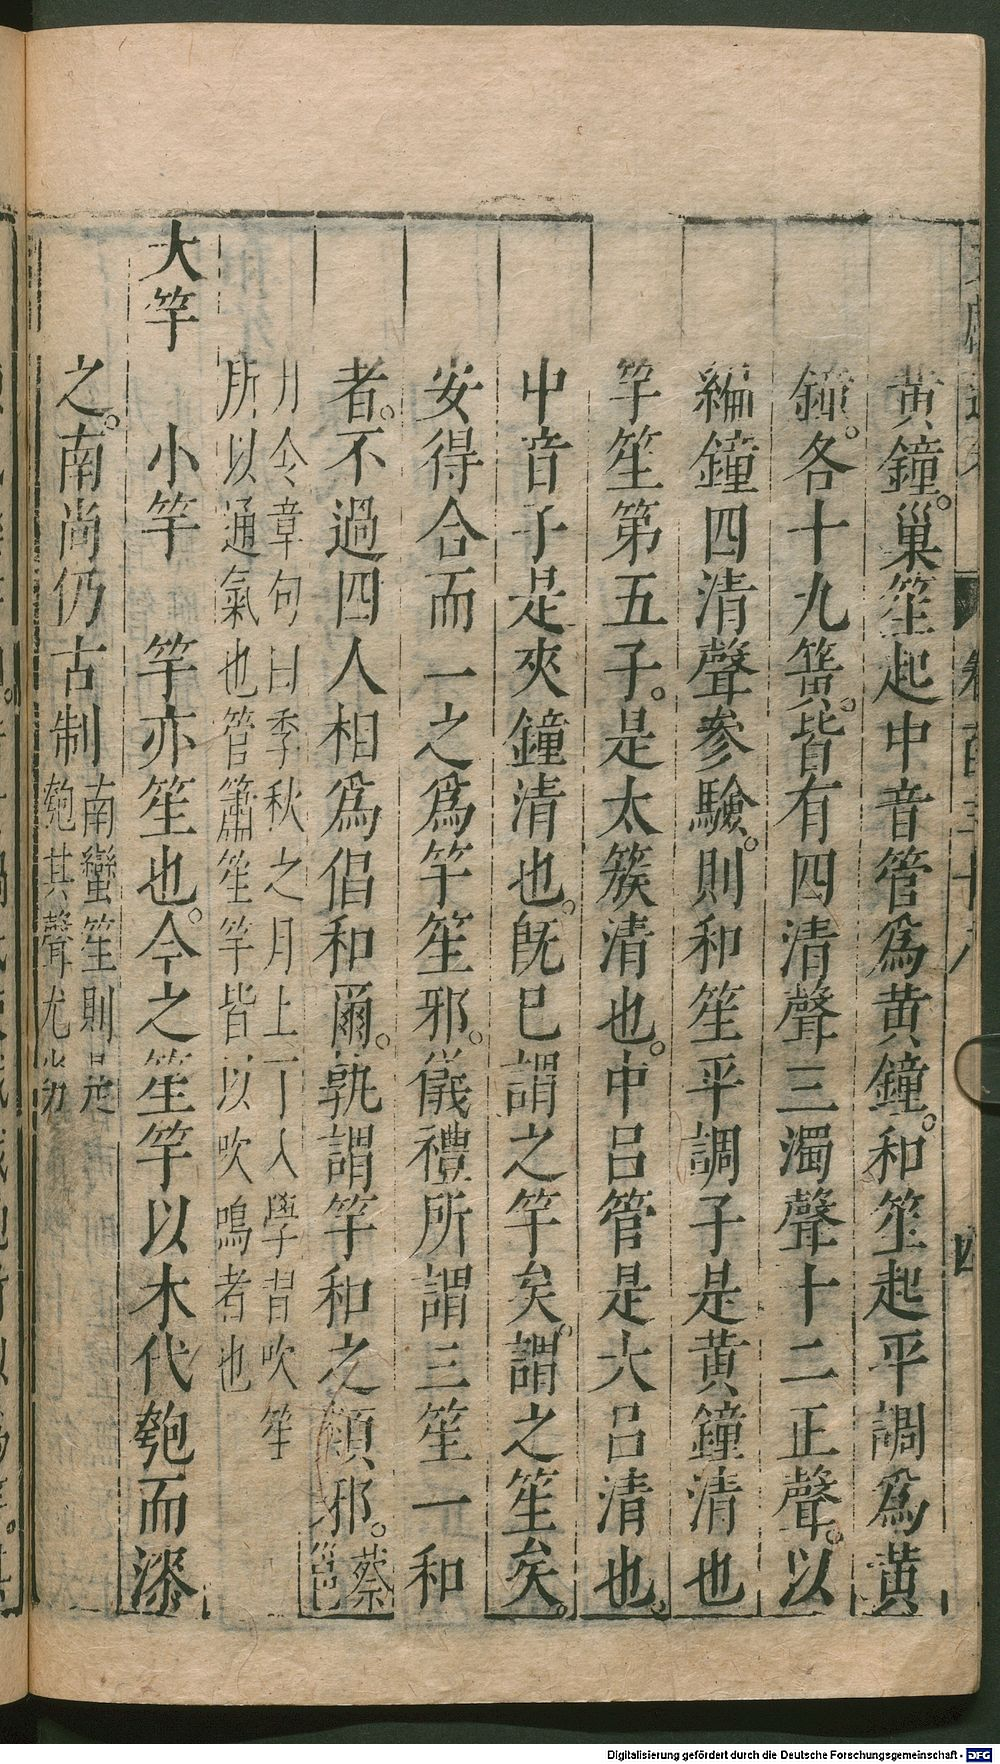 黃鐘。巢笙起中音管爲黃鐘。和笙起平調爲黃
鐘。各十九簧。皆有四清聲三濁聲十二正聲。以
編鐘四清聲參驗。則和笙平調子是黃鐘清也
竽笙第五子。是太簇清也。中呂管是大呂清也。
中音子是夾鐘清也。旣巳謂之竽矣。謂之笙矣。
安得合而一之爲竽笙邪。儀禮所謂三笙一和
者。不過四人相爲倡和爾。孰謂竽和之類邪。蔡邕
月令章句曰季秋之月上丁入學習吹笙
所以通氣也管簫笙竽皆以吹鳴者也
大竽 小竽 竽亦笙也。今之笙竽以木代匏而漆
之。南尚仍古制南蠻笙則是
匏其聲尤劣
四
Digitalisierung gefördert durch die Deutsche Forschungsgemeinschaft - DFG